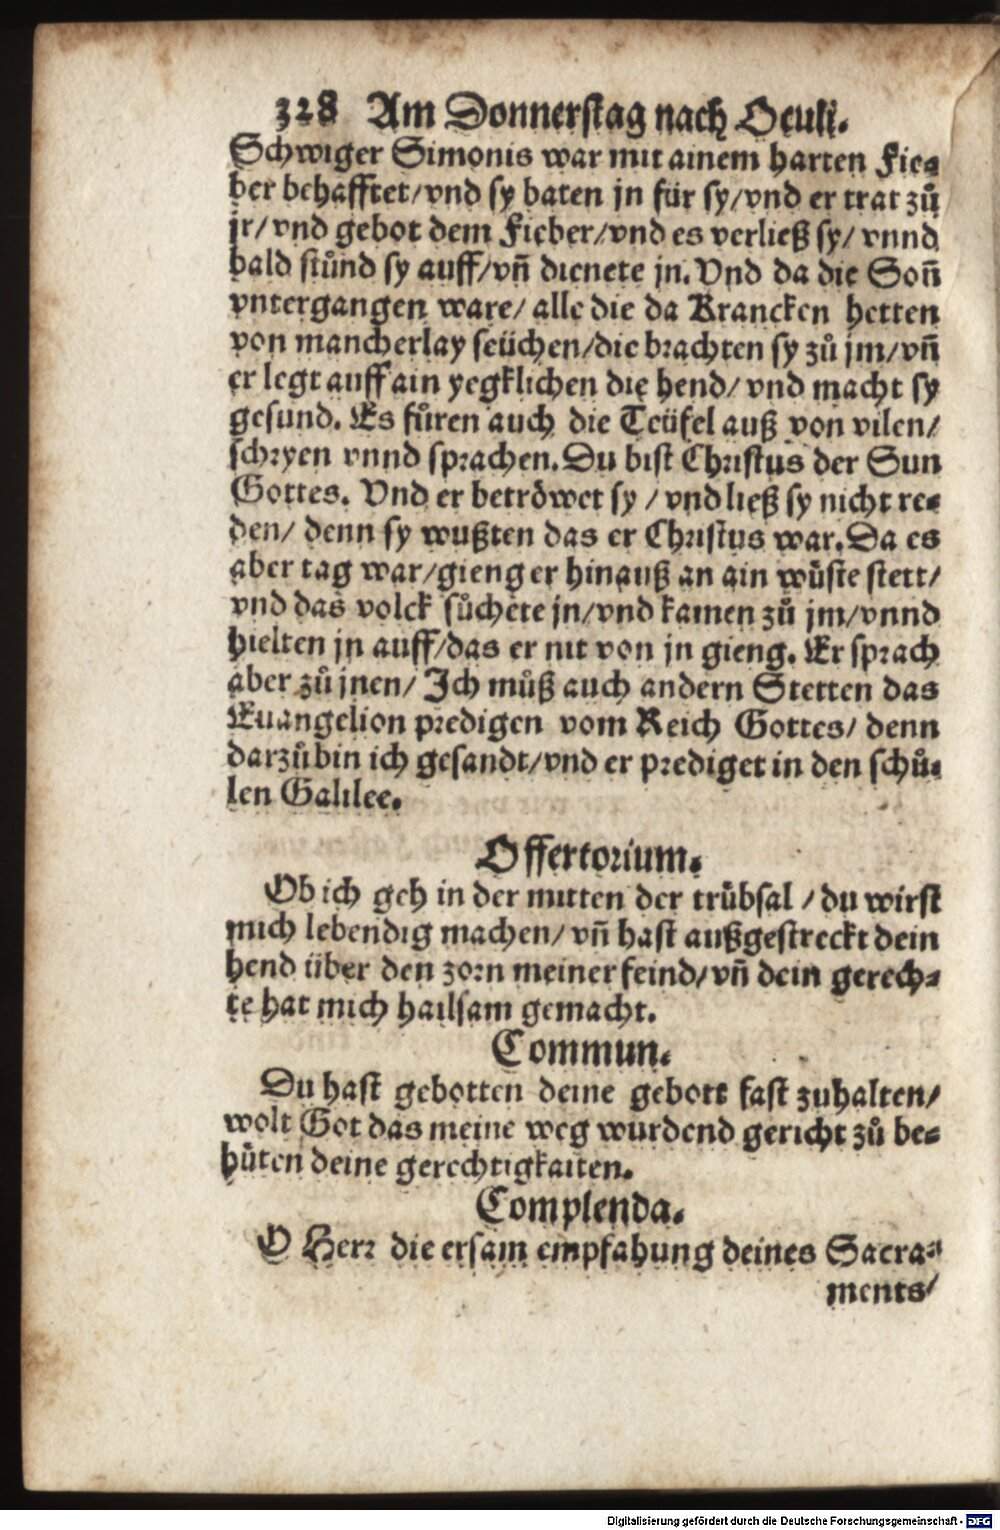 328 Am Donnerstag nach Oculi.
Schwiger Simonis war mit ainem harten Fie⸗
ber behafftet/vnd sy baten jn für sy/vnd er trat zů
jr/vnd gebot dem Fieber/vnd es verließ sy/ vnnd
bald stůnd sy auff/vñ dienete jn. Vnd da die Soñ
vntergangen ware/ alle die da Krancken hetten
von mancherlay seüchen/die brachten sy zů jm/vñ
er legt auff ain yegklichen die hend/ vnd macht sy
gesund. Es fůren auch die Teüfel auß von vilen/
schryen vnnd sprachen. Du bist Christus der Sun
Gottes. Vnd er betröwet sy / vnd ließ sy nicht re⸗
den/ denn sy wußten das er Christus war. Da es
aber tag war/gieng er hinauß an ain wüste stett/
vnd das volck sůchete jn/vnd kamen zů jm/vnnd
hielten jn auff/das er nit von jn gieng. Er sprach
aber zů jnen/ Ich můß auch andern Stetten das
Euangelion predigen vom Reich Gottes/ denn
darzů bin ich gesandt/vnd er prediget in den schů⸗
len Galilee.
Offertorium.
Ob ich geh in der mitten der trübsal / du wirst
mich lebendig machen/ vñ hast außgestreckt dein
hend über den zorn meiner feind/ vñ dein gerech⸗
te hat mich hailsam gemacht.
Commun.
Du hast gebotten deine gebott fast zuhalten/
wolt Got das meine weg wurdend gericht zů be⸗
hüten deine gerechtigkaiten.
Complenda.
O Herr die ersam empfahung deines Sacra⸗
ments/
Digitalisierung gefördert durch die Deutsche Forschungsgemeinschaft - DFG